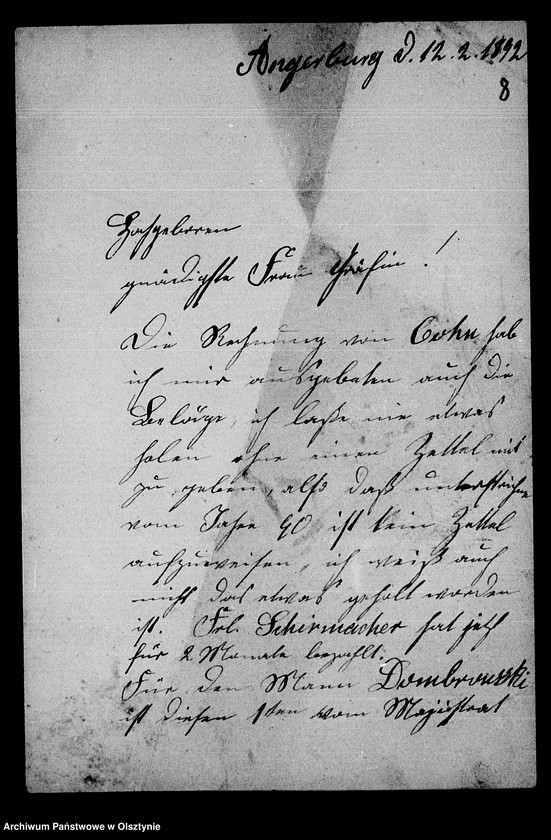 Angerburg d. 12. 2. 1892
8
Hochgeboren
gnädigste Frau Gräfin!
Die Rechnung von Cohn hab
ich mir ausgebeten auch die
Beläge, ich laße nie etwas
holen ohne einen Zettel mit
zu geben, also daß unterstrichne
vom Jahre 90 ist kein Zettel
aufzuweisen, ich weiß auch
nicht das etwas geholt worden
ist. Frl. Schirmacher hat jetzt
für 2 Monate bezahlt.
Für den Mann Dombrowski
ist diesen 1ten vom Magistrat
Archiwum Państwowe w Olsztynie